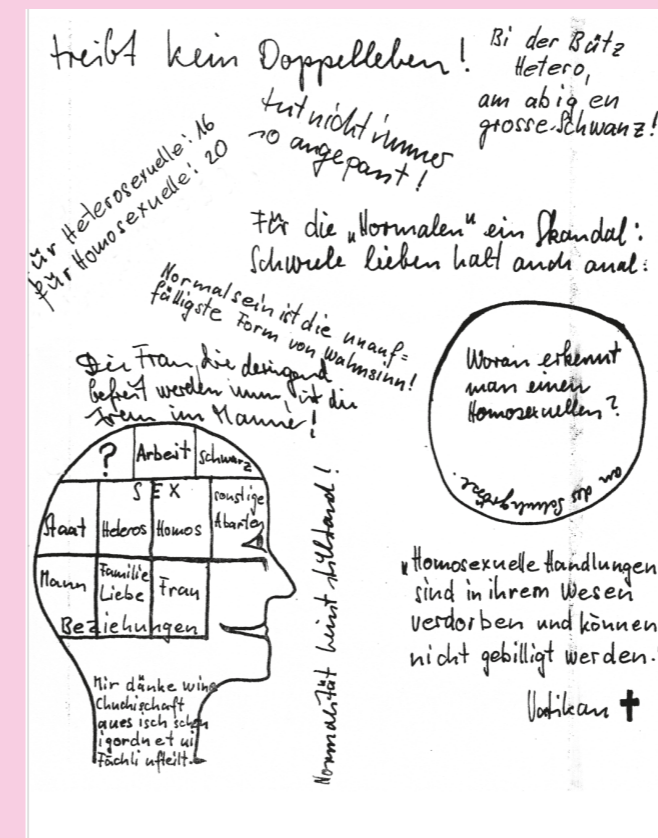 treibt kein Doppelleben!
Bi der Bütz
Hetero,
am abig en
grosse Schwanz!
tut nicht immer
so angepasst!
für Heterosexuelle: 16
für Homosexuelle: 20
Für die „Normalen" ein Skandal:
Schwule lieben halt auch anal:
Normalsein ist die unauf=
fälligste Form von Wahnsinn!
Die Frau, die dringend
befreit werden muss, ist die
Frau im Manne!
Woran erkennt
man einen
Homosexuellen?
an der Schuhgrösse.
?
Arbeit
schwarz
SEX
sonstige
Abarten
Staat
Heteros
Homos
Mann
Familie
Liebe
Frau
Beziehungen
Mir dänke wine
Chuchischaft
aues isch schön
igordnet ui
Fächli ufteilt.
Normalität heisst Stillstand!
„Homosexuelle Handlungen
sind in ihrem Wesen
verdorben und können
nicht gebilligt werden."
Vatikan ✝